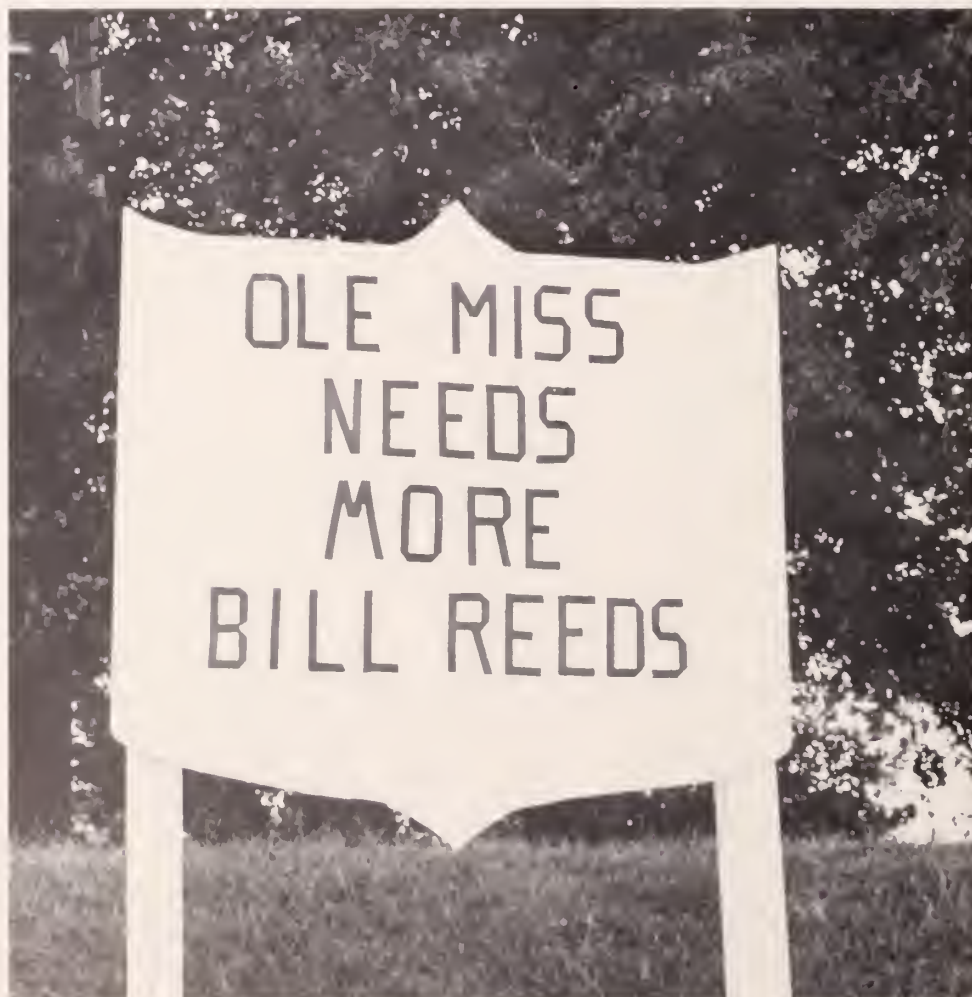 OLE MISS
NEEDS
MORE
BILL REEDS